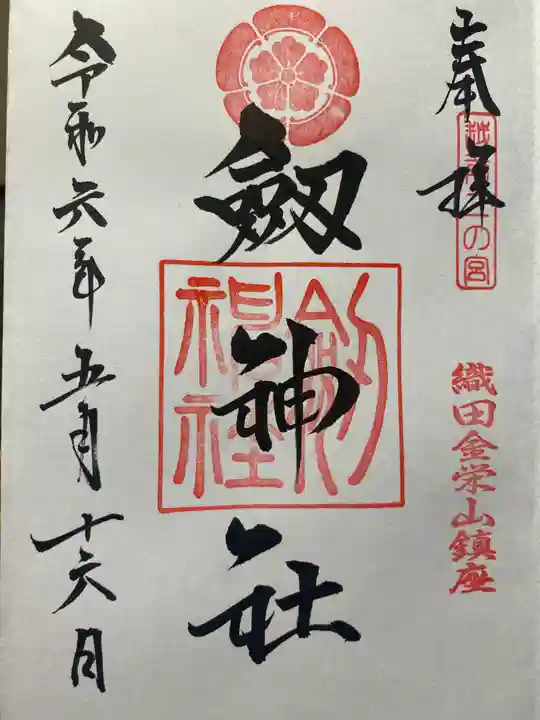 奉拝
越前二の宮
織田金栄山鎮座
劔神社
劔神社
令和六年五月十六日